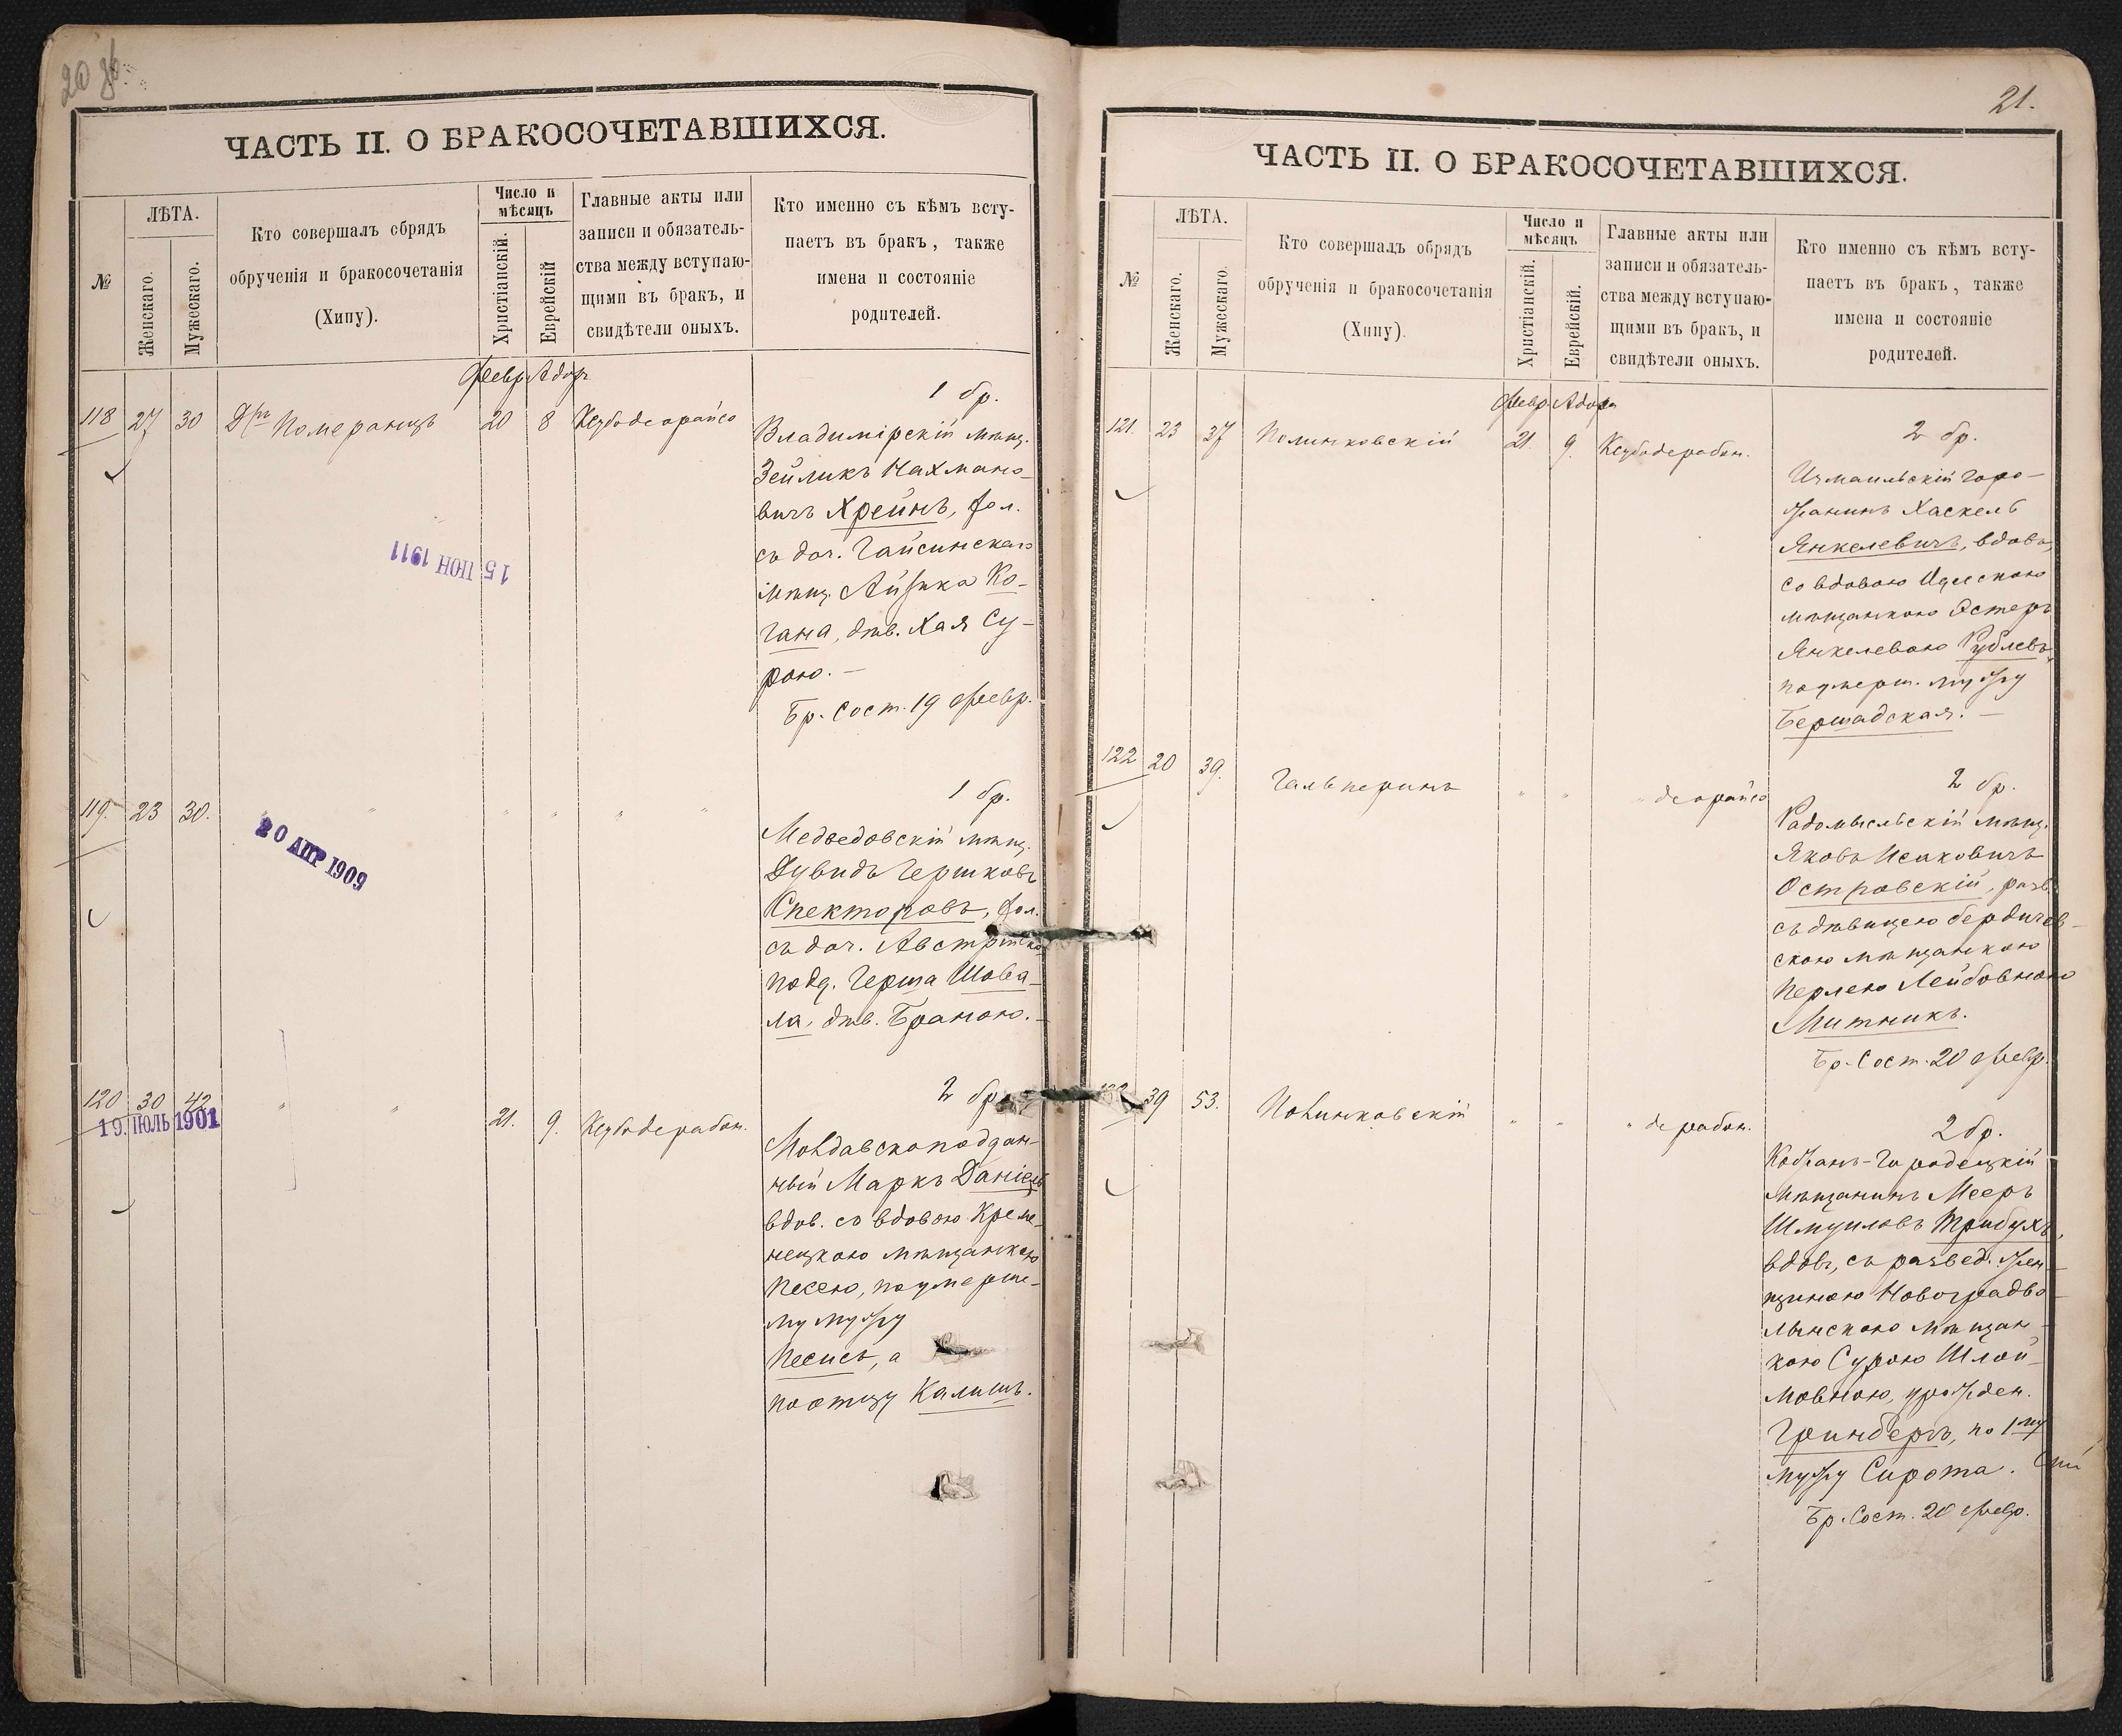 20 об.
ЧАСТЬ II. О БРАКОСОЧЕТАВШИХСЯ.
№
ЛѢТА.
Женскаго.
Мужескаго.
Кто совершалъ обрядъ
обрученія и бракосочетанія
(Хипу).
Число и
мѣсяцъ
Христіанскій.
Еврейскій
Главные акты или
записи и обязатель-
ства между вступаю-
щими въ бракъ, и
свидѣтели оныхъ.
Кто именно съ кѣмъ всту-
паетъ въ бракъ, также
имена и состояніе
родителей.
Февр. Адор.
118 27 30 Д-ръ Померанцъ 20 8 Ксубодеорайсо
1 бр.
Владимірскій мѣщ.
Зейликъ Нахмано-
вичъ Крейнъ, хол.
съ доч. Гайсинскаго
мѣщ. Айзика Ко-
гана, дѣв. Хая Су-
рою. —
Бр. Сост. 19 Февр.
15 ІЮН 1911
119. 23 30. " " " " " "
1 бр.
Медведовскій мѣщ.
Дувидъ Гершковъ
Спекторовъ, хол.
съ доч. Австрійско
подд. Герша Шова-
ла, дѣв. Браною. —
20 АПР 1909
120 30 42 " " 21. 9. Ксубодерабон.
19. ІЮЛЬ 1901
2 бр.
Молдавскоподдан-
ный Маркъ Даніель
вдов. со вдовою Креме-
нецкою мѣщанкою
Песею, поумерше-
му мужу
Песисъ, а
по отцу Калишъ.
21.
ЧАСТЬ II. О БРАКОСОЧЕТАВШИХСЯ.
№
ЛѢТА.
Женскаго.
Мужескаго.
Кто совершалъ обрядъ
обрученія и бракосочетанія
(Хипу).
Число и
мѣсяцъ
Христіанскій.
Еврейскій.
Главные акты или
записи и обязатель-
ства между вступаю-
щими въ бракъ, и
свидѣтели оныхъ.
Кто именно съ кѣмъ всту-
паетъ въ бракъ, также
имена и состояніе
родителей.
Февр. Адора
121. 23 37 Полинковскій 21. 9. Ксубодерабон.
2 бр.
Измаильскій горо-
жанинъ Хаскель
Янкелевичъ, вдовъ,
со вдовою
мѣщанкою Эстеръ
Янкелевою Рублевъ,
поумерш. мужу
Бершадская. —
122 20 39. Гальперинъ " " " деорайсо
2 бр.
Радомысльскій мѣщ.
Яковъ Исаковичъ
Островскій, разв.
съ дѣвицею бердичев-
скою мѣщанкою
Перлею Лейбовною
Митникъ.
Бр. Сост. 20 Февр.
39 53. Полинковскій " " " дерабон.
2 бр.
Кожанъ-Городецкій
мѣщанинъ Мееръ
Шмуиловъ Трибухъ,
вдовъ, съ развед. жен-
щиною Новоградво-
лынскою мѣщан-
кою Сурою Шлой-
мовною, урожден.
Гринбергъ, по 1му
мужу Сирота.
Бр. Сост. 20 Февр.